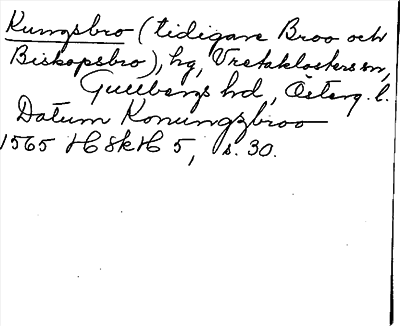 Kungsbro (tidigare Broo och
Biskopsbro), hg, Vretaklosters sn,
Gullbergs hd, Österg. l.
Datum Konungzbroo
1565 HSkH 5, s. 30.